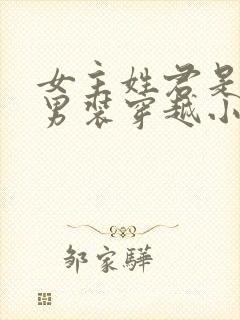 女主姓君是
男装穿越小
邹家驊